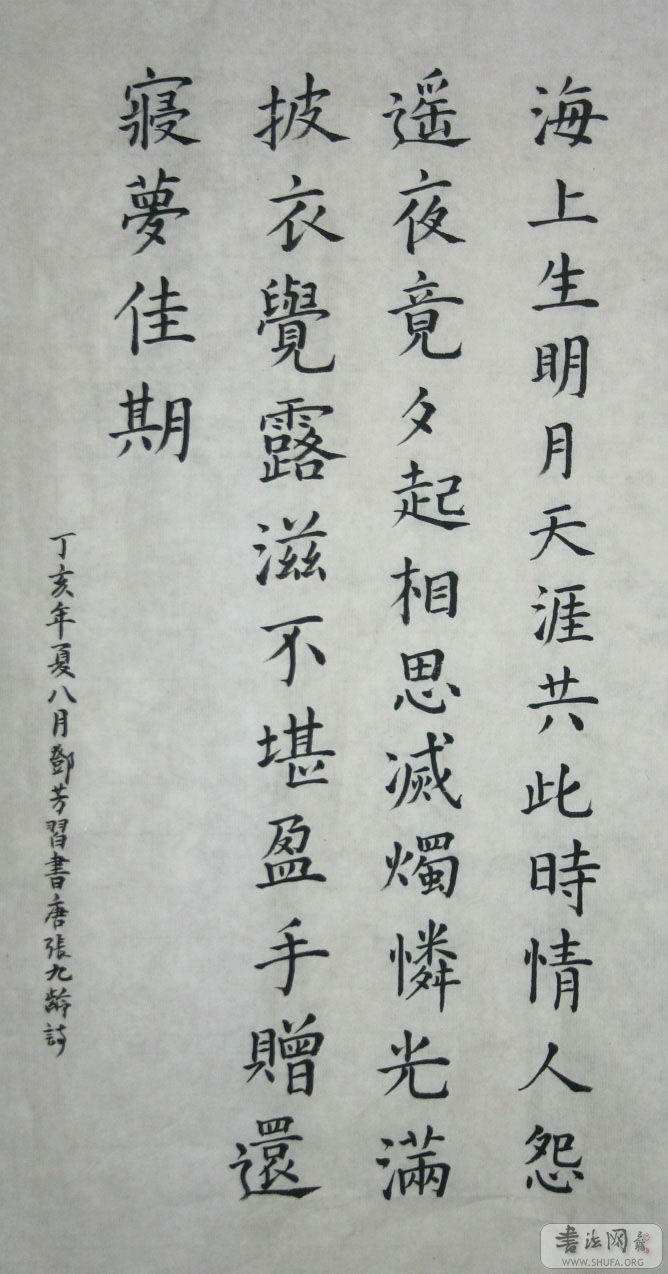 海上生明月天涯共此時情人怨
遥夜竟夕起相思滅燭憐光滿
披衣覺露滋不堪盈手贈還
寢夢佳期
丁亥年夏八月鄧芳習書唐張九齡詩
書法网
WWW.SHUFA.ORG